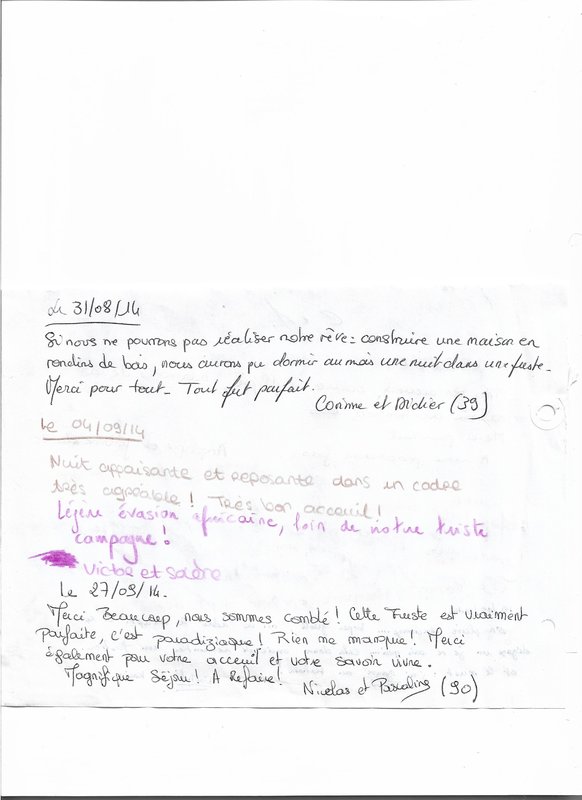 Le 31/08/14
Si nous ne pourrons pas réaliser notre rêve = construire une maison en
rondins de bois, nous aurons pu dormir au mois une nuit dans une fuste.
Merci pour tout. Tout fut parfait.
Corinne et Didier (39)
Le 04/09/14
Nuit appaisante et reposante dans un cadre
très agréable ! Très bon acceuil !
Légère évasion africaine, loin de notre triste
campagne !
Victor et
Le 27/09/14.
Merci Beaucoup, nous sommes comblé ! Cette Fuste est vraiment
parfaite, c'est paradiziaque ! Rien ne manque ! Merci
également pour votre acceuil et votre savoir vivre.
Magnifique Séjour ! A Refaire !
Nicolas et Pascaline (90)